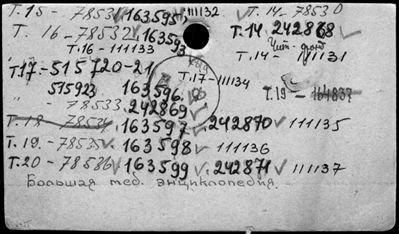 Т. 15 - 78531 163595, 111132. Т. 14 - 78530
Т. 16 - 78532 163593 Т. 14 242868
Т. 16 - 111133 Чит. фонд
Т. 14 - 111131
Т. 17 - 515720-21 Т. 17 - 111134
575923 163596. Т. 19 - 164837
" - 78533 242869
Т. 18 - 78534 163597 242870 111135
Т. 19 - 78535 163598 111136
Т. 20 - 78536 163599 242871 111137
Большая мед. энциклопедия.